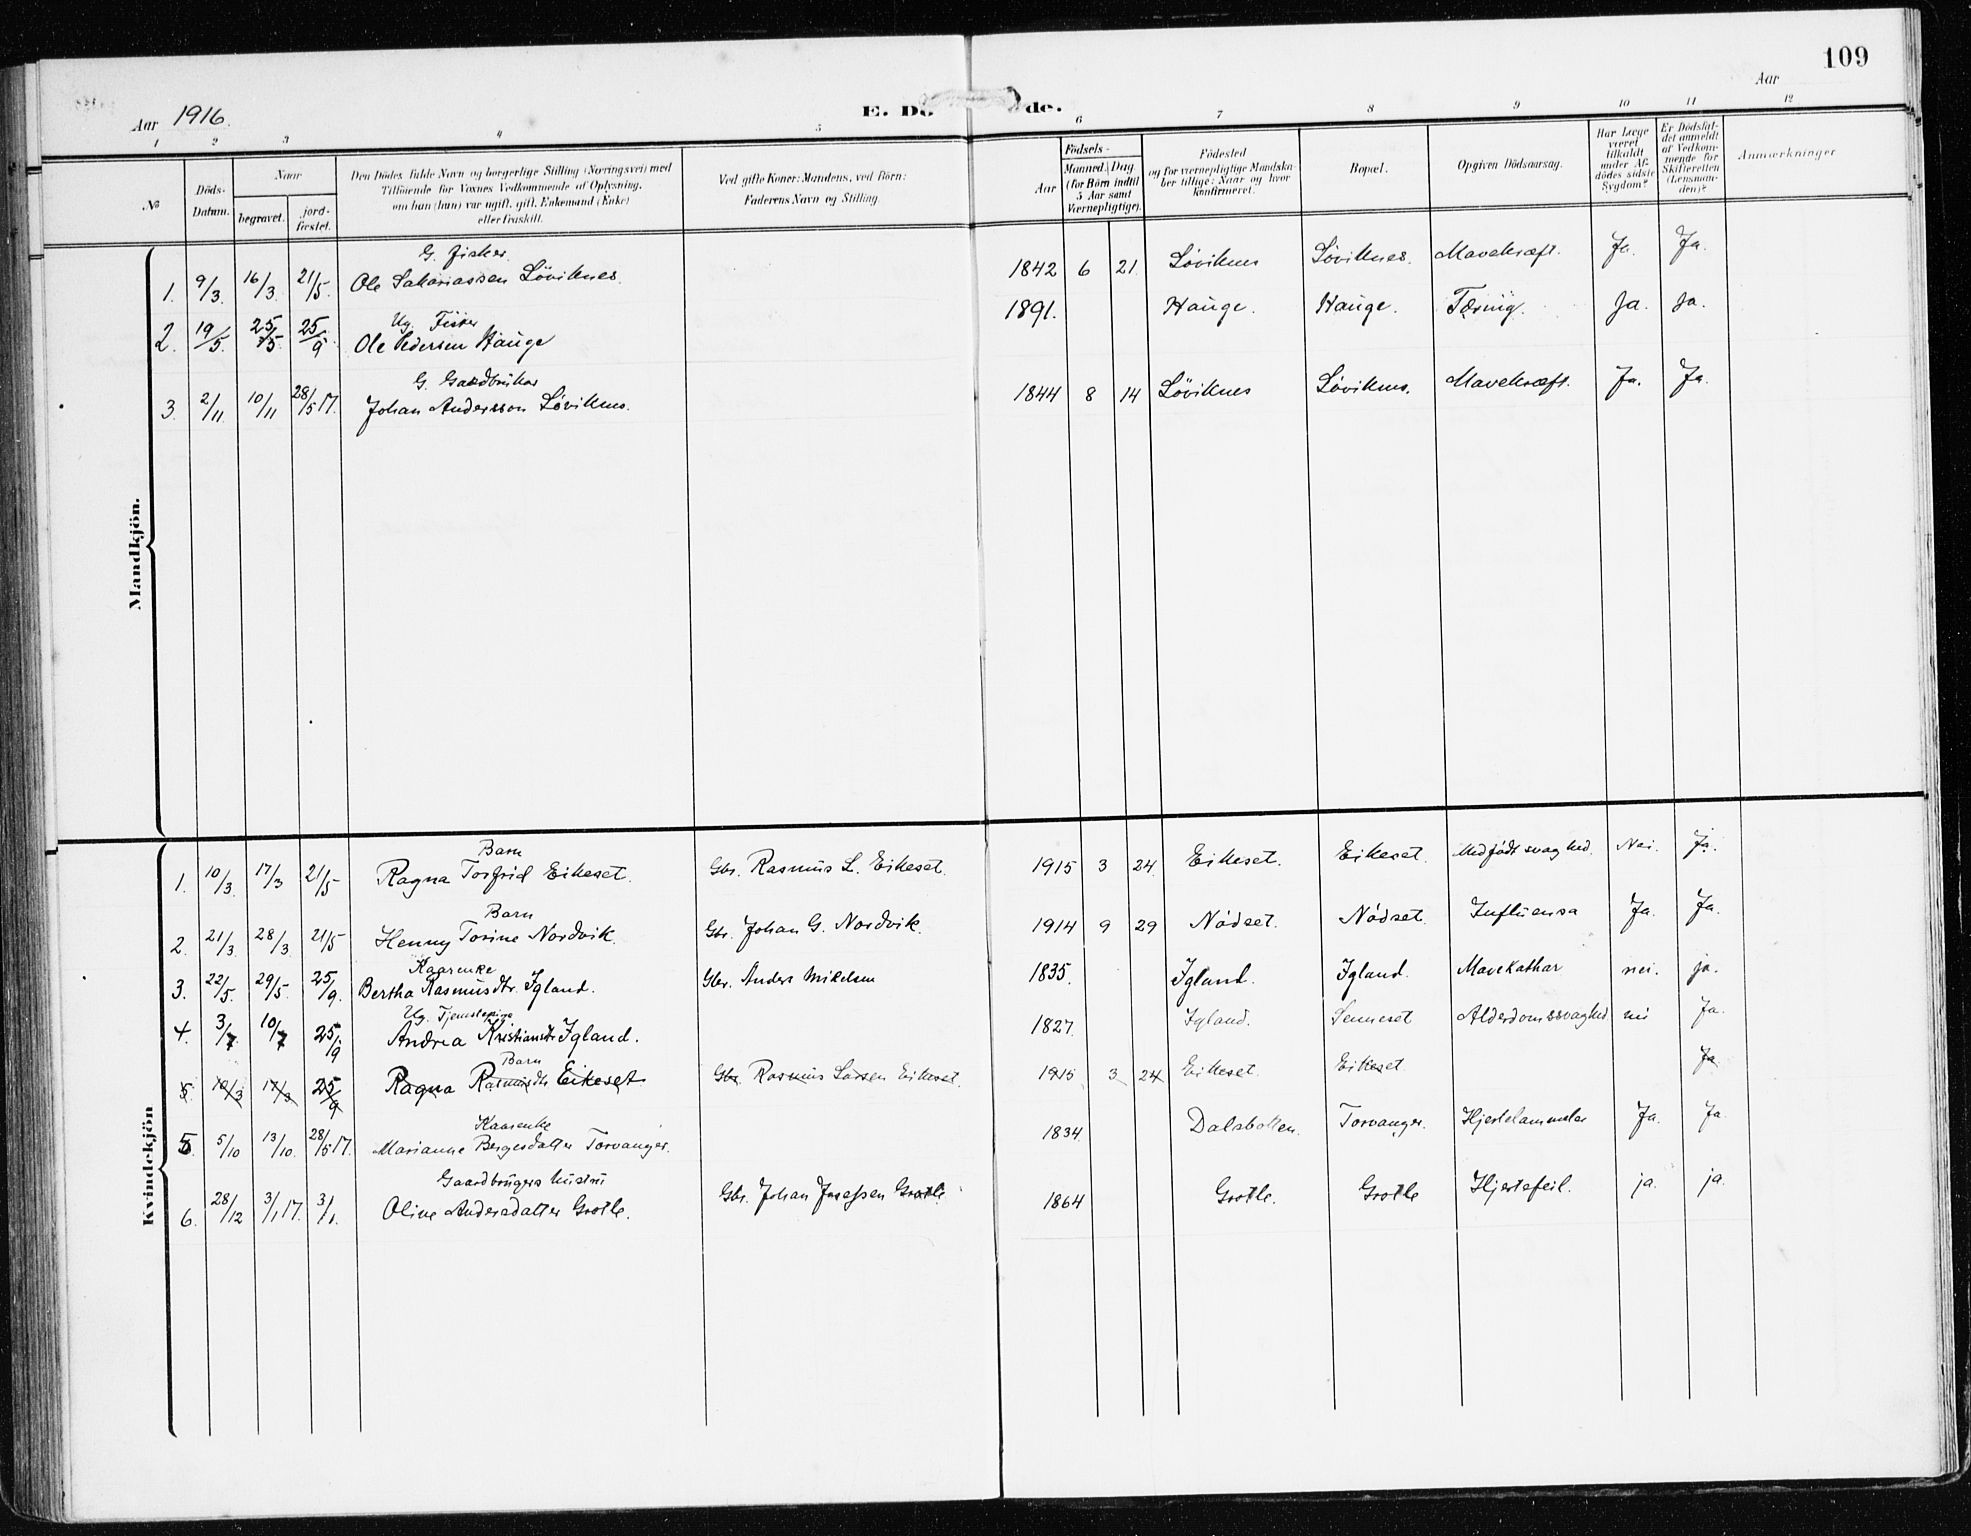 109
Aar 1916.
E. Dö de.
Aar
1 2 3 4 5 6 7 8 9 10 11 12
№
Döds-
Datum.
Naar
begravet.
jord-
fæstet.
Den Dödes fulde Navn og borgerlige Stilling (Næringsvei) med
Tilföiende for Voxnes Vedkommende af Oplysning,
om han (hun) var ugift, gift, Enkemand (Enke)
eller fraskilt.
Ved gifte Koner: Mandens, ved Börn:
Faderens Navn og Stilling.
Födsels-
Aar
Maaned. Dag.
(for Börn indtil
5 Aar samt
Værnepligtige).
Födested
og for værnepligtige Mandska-
ber tillige: Naar og hvor
konfirmeret.
Bopæl.
Opgiven Dödsaarsag.
Har Læge
været
tilkaldt
under Af-
dödes sidste
Sygdom?
Er Dödsfal-
det anmeldt
af Vedkom-
mende for
Skifteretten
(Lensman-
den)?
Anmærkninger
Mandkjön.
G. Fisker.
1. 9/3. 16/3. 21/5. Ole Sakariassen Löviknes. 1842 6 21 Löviknes Löviknes. Mavekræft. Ja. Ja.
Ug. Fisker
2. 19/5. 25/5. 25/9. Ole Pedersen Hauge 1891. Hauge. Hauge. Tæring. Ja. ja.
G. Gaardbruker
3. 2/11. 10/11 28/5 17. Johan Anderssen Löviknes. 1844 8 14 Löviknes Löviknes. Mavekræft. Ja. Ja.
Kvindekjön
Barn
1. 10/3. 17/3 21/5 Ragna Torfrid Eikeset. Gbr. Rasmus L. Eikeset. 1915 3 24. Eikeset. Eikeset. Medfödt svaghed. Nei. Ja.
Barn
2. 21/3. 28/3. 21/5 Henny Torine Nordvik. Gbr. Johan G. Nordvik. 1914 9 29 Nödset. Nödset. Influensa Ja. Ja.
Kaarenke
3. 22/5. 29/5. 25/9. Bertha Rasmusdtr. Igland. Gbr. Anders Mikelsen 1835. Igland. Igland. Mavekathar nei. ja.
Ug. Tjenstepige
4. 3/7 10/7 25/9 Andrea Kristiansdtr Igland. 1827. Igland. Senneset Alderdomssvaghed nei Ja.
Barn
5. 10/3 17/3 25/9 Ragna Rasmusdtr Eikeset Gbr. Rasmus Larsen Eikeset. 1915 3 24 Eikeset. Eikeset. Ja
Kaarenke
5. 5/10 13/10. 28/5 17. Marianne Bergesdatter Torvanger. 1834. Dalsbotten. Torvanger. Hjertelammelse Ja. Ja.
Gaardbrugers hustru
6. 28/12 3/1 17. 3/1. Oline Andersdatter Grotle. Gbr. Johan Josefsen Grotle. 1864 Grotle. Grotle Hjertefeil. ja. ja.